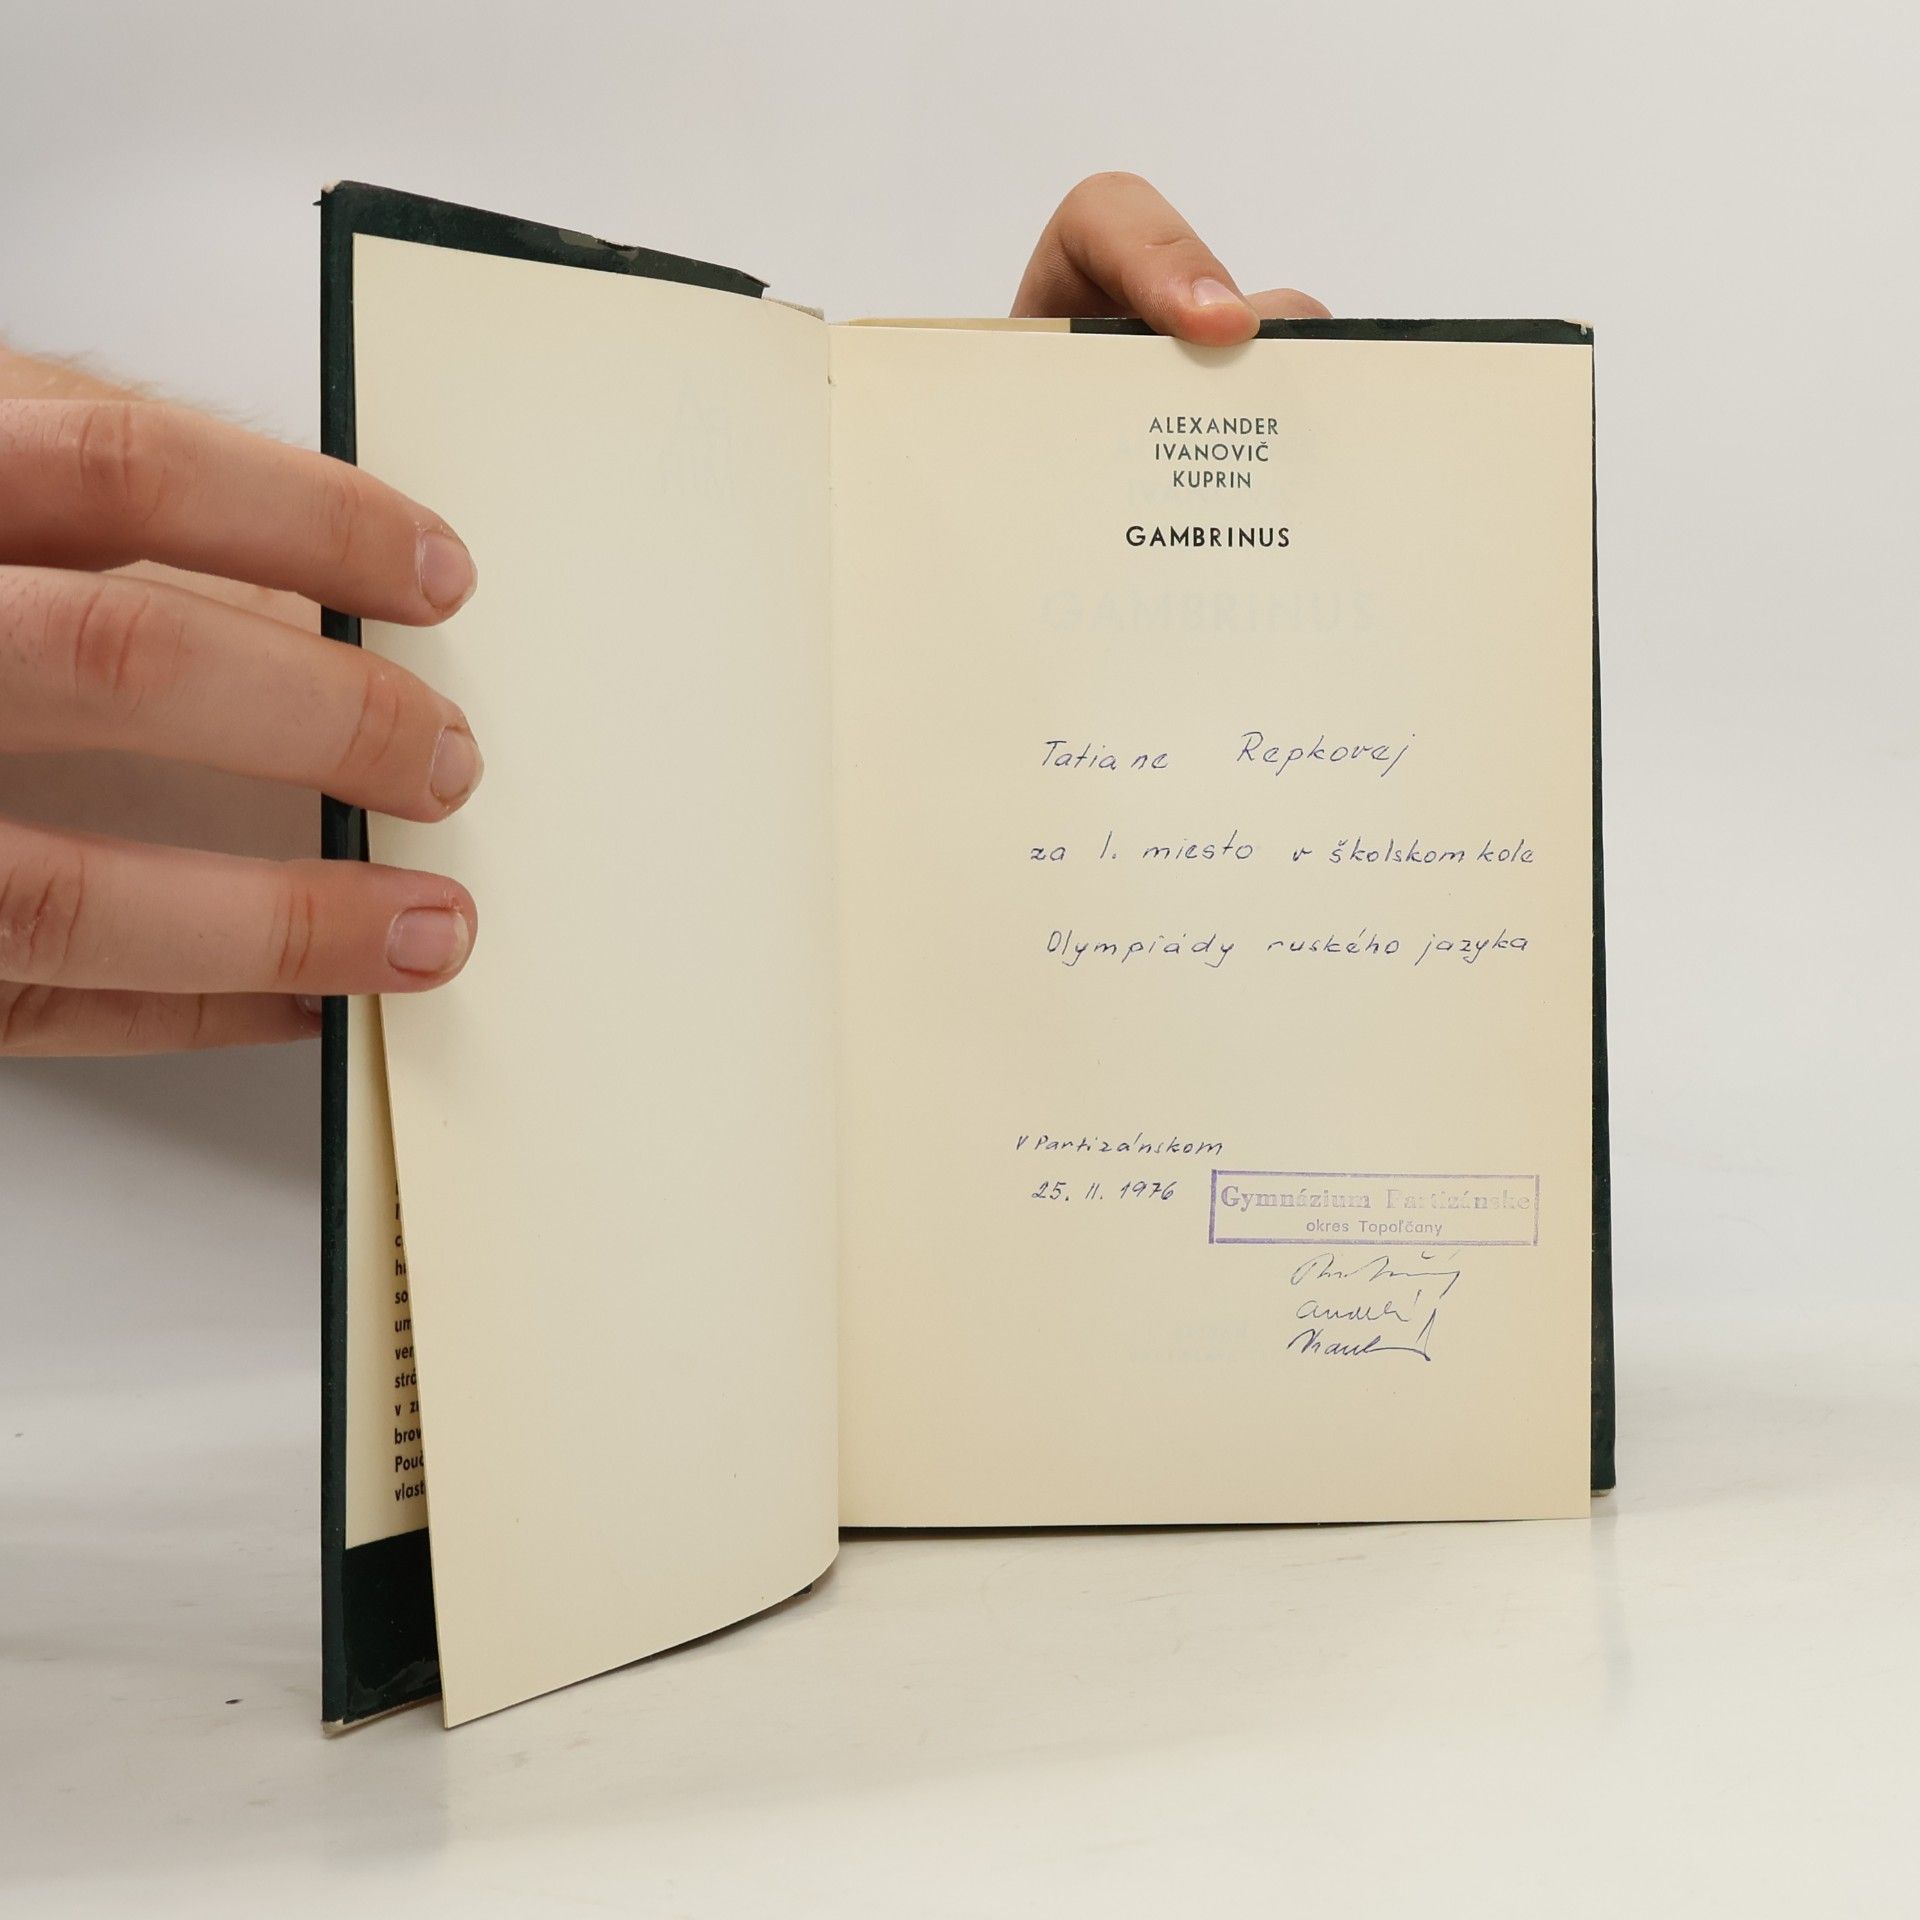 ALEXANDER
IVANOVIČ
KUPRIN
GAMBRINUS
Tatiane Repkovej
za 1. miesto v školskom kole
Olympiády ruského jazyka
V Partizánskom
25. II. 1976
Gymnázium Partizánske
okres Topoľčany
so
v
vlast